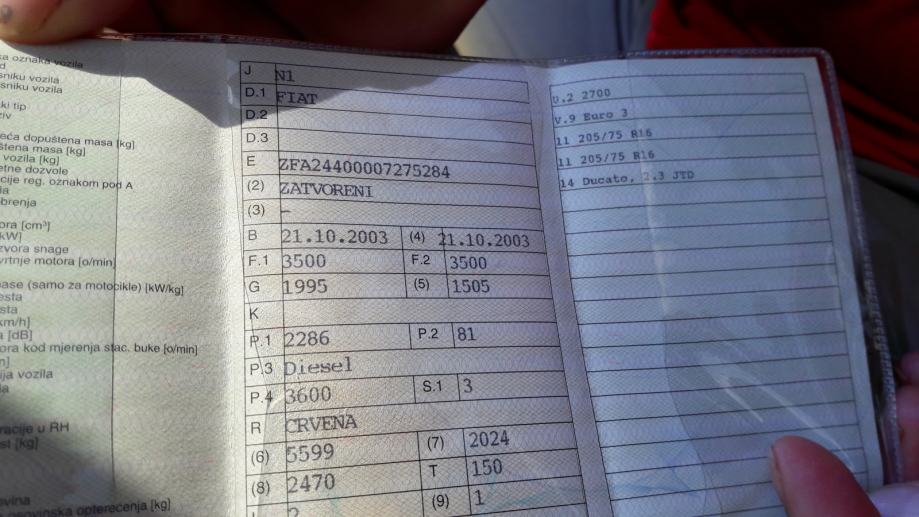 ka oznaka vozila
sniku vozila
sniku vozila
ki tip
ziv
eća dopuštena masa [kg]
štena masa [kg]
vozila [kg]
etne dozvole
cije reg. oznakom pod A
la
brenja
ora [cm³]
kW]
zvora snage
vrtnje motora [o/min]
ase (samo za motocikle) [kW/kg]
esta
sta
km/h]
a [dB]
ora kod mjerenja stac. buke [o/min]
ija vozila
racije u RH
st [kg]
ovina
osovinska opterećenja [kg]
J N1
D.1 FIAT
D.2
D.3
E ZFA24400007275284
(2) ZATVORENI
(3) –
B 21.10.2003 (4) 21.10.2003
F.1 3500 F.2 3500
G 1995 (5) 1505
K
P.1 2286 P.2 81
P.3 Diesel
P.4 3600 S.1 3
R CRVENA
(6) 5599 (7) 2024
(8) 2470 T 150
L 2 (9) 1
U.2 2700
V.9 Euro 3
11 205/75 R16
11 205/75 R16
14 Ducato, 2.3 JTD